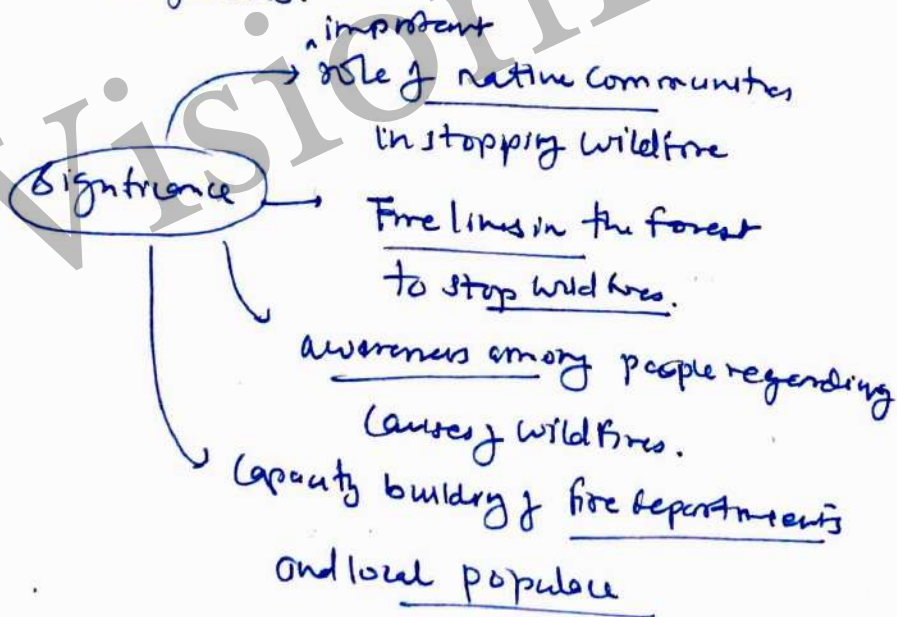 important
role of native communities
in stopping wildfire
Significance
Fire lines in the forest
to stop wild fires.
awareness among people regarding
causes of wildfires.
Capacity building of fire departments
and local populace
Vision